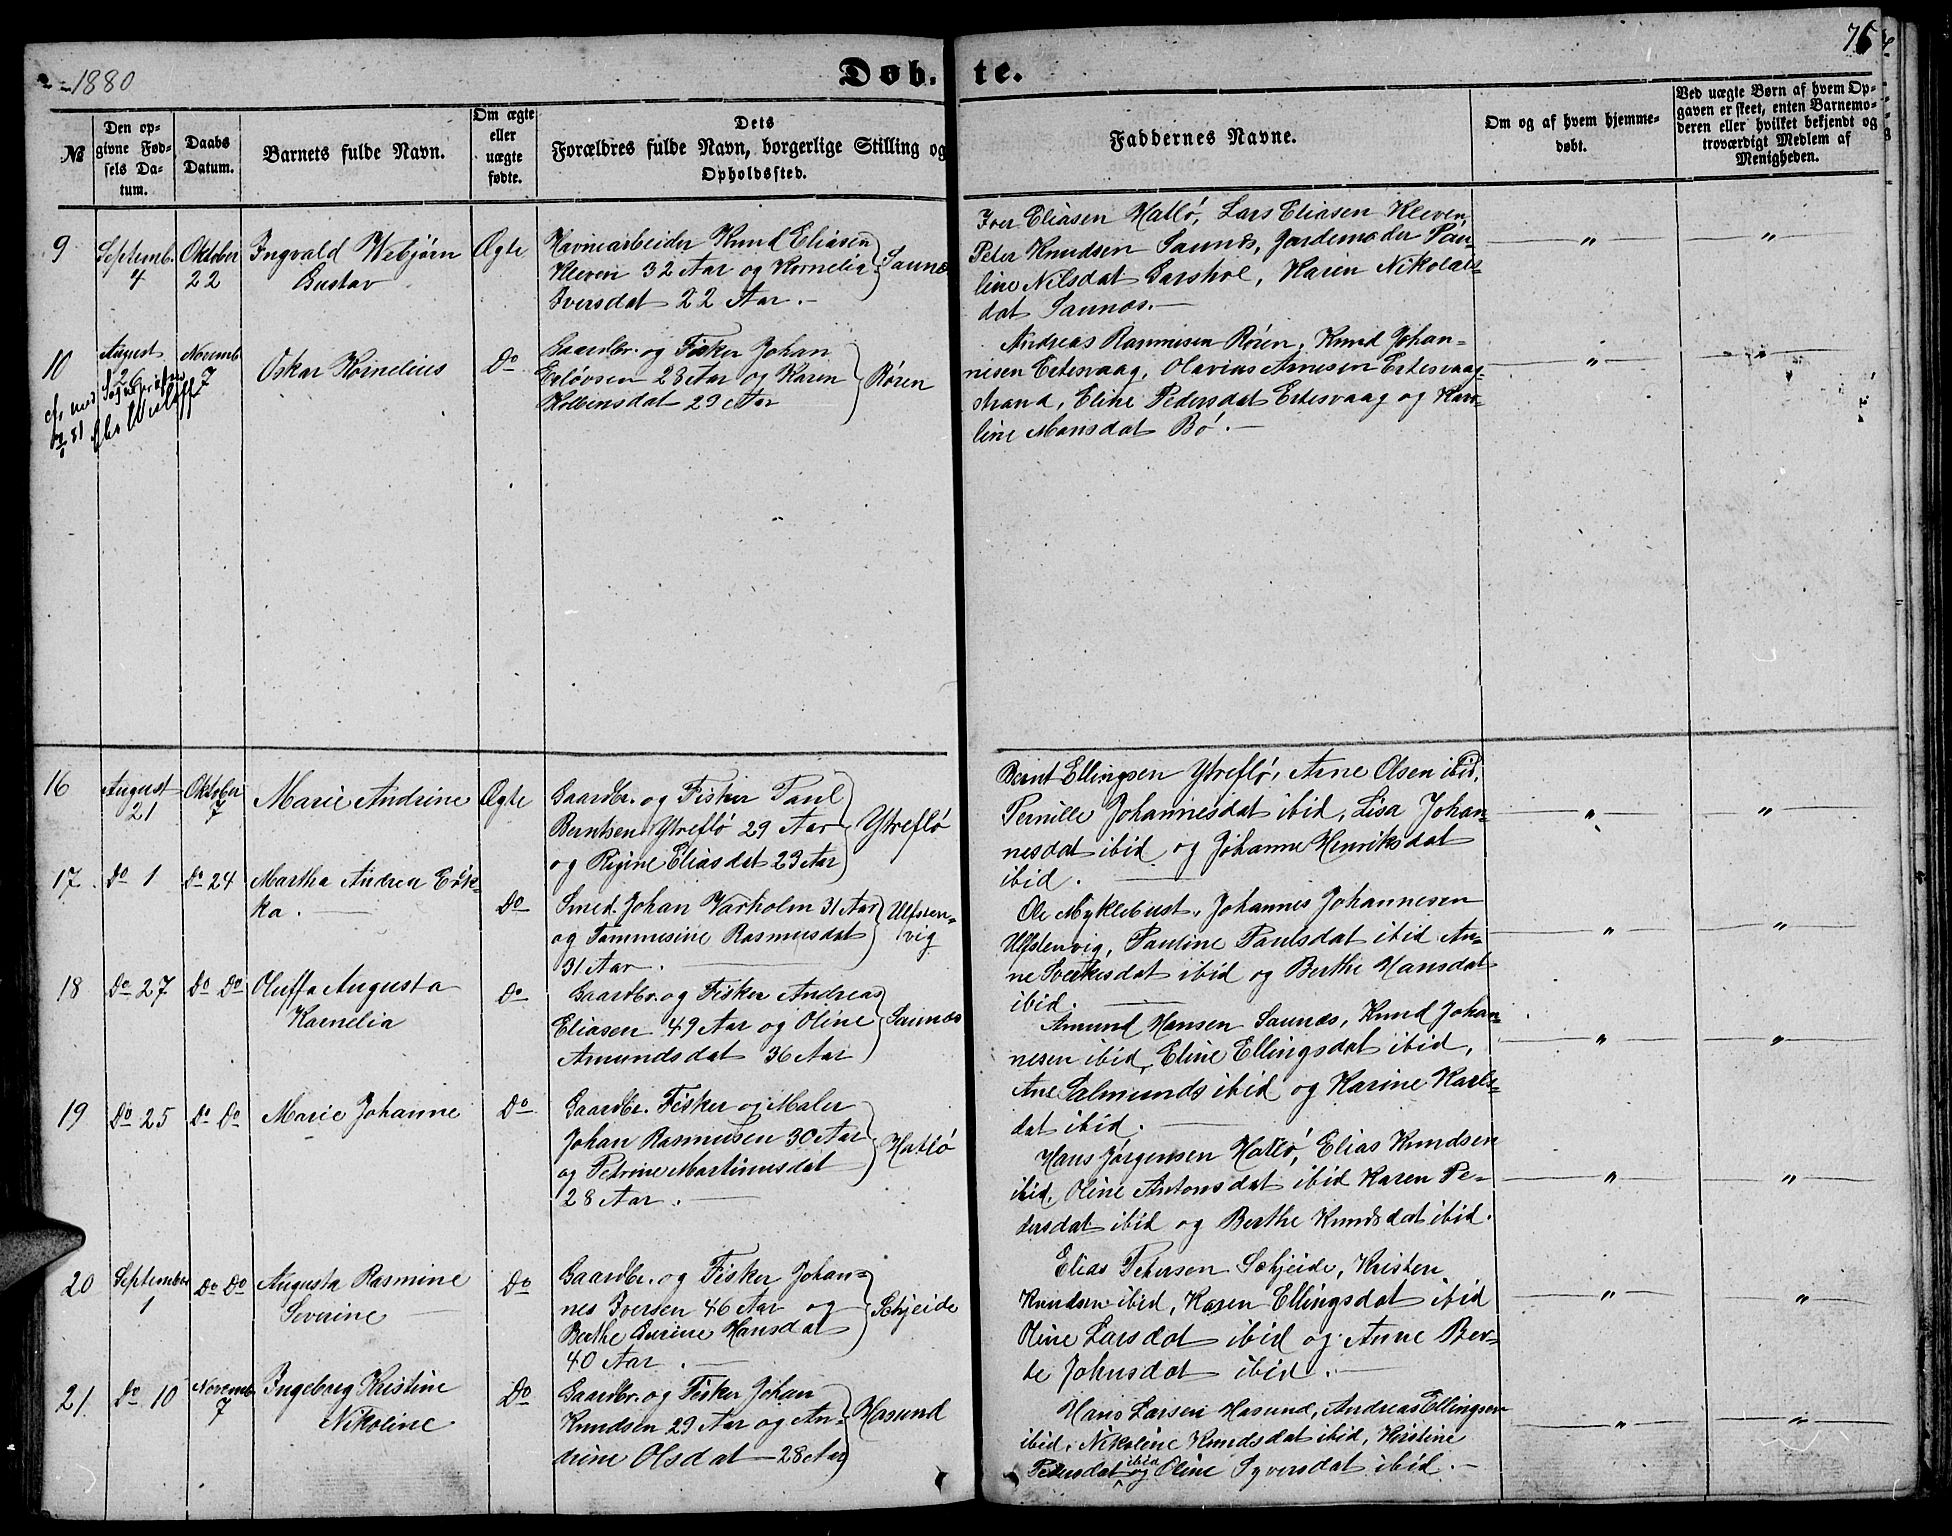 1880
Døb- te.
75
№
Den op-
givne Fød-
sels Da-
tum.
Daabs
Datum.
Barnets fulde Navn.
Om ægte
eller
uægte
fødte.
Dets
Forældres fulde Navn, borgerlige Stilling og
Opholdssted.
Faddernes Navne.
Om og af hvem hjemme-
døbt.
Ved uægte Børn af hvem Op-
gaven er skeet, enten Barnemo-
deren eller hvilket bekjendt og
troværdigt Medlem af
Menigheden.
9
Septemb.
4
Oktober
22
Ingvald Webjørn
Gustav
Ægte
Havnearbeider Knud Eliasen
Kleven 32 Aar og Kornelia
Iversdat 22 Aar.
Saunæs
Iver Eliasen Hatlö, Lars Eliasen Kleven,
Peter Knudsen Saunæs, Jordemoder Pau-
line Nilsdat Garshol, Karen Nikolais-
dat Saunæs.
" "
10
August
26
Novemb
7
Oskar Kornelius
Do
Gaardbr. og Fisker Johan
Enløvsen 28 Aar og Karen
Kolbensdat 29 Aar
Røren
Andreas Rasmusen Rören, Knud Johan-
nesen Ertesvaag, Olavius Arnesen Ertesvaag-
strand, Eline Pedersdat Ertesvaag og Karo-
line Monsdat Bö.
" "
16
August
21
Oktober
7
Marie Andrine
Ægte
Gaardbr. og Fisker Paul
Berntsen Ytreflö 29 Aar
og Regine Eliasdat 23 Aar
Ytreflö
Bernt Ellingsen Ytreflö, Arne Olsen ibid,
Pernille Johannesdat ibid, Lisa Johan-
nesdat ibid og Johanne Henriksdat
ibid.
" "
17.
Do 1
Do 24
Martha Andrea Erik-
ka.
Do
Smed. Johan Varholm 31 Aar
og Tommesine Rasmusdat
31 Aar.
Ulfsten-
vig
Ole Myklebust, Johannes Johannesen
Ulfstenvig, Pauline Paulsdat ibid An-
ne Sverkesdat ibid og Berthe Hansdat
ibid.
" "
18
Do 27
Do Do
Oluffa Augusta
Kornelia
Do
Gaardbr. og Fisker Andreas
Eliasen 49 Aar og Oline
Amundsdat 36 Aar
Saunæs
Amund Hansen Saunæs, Knud Johan-
nesen ibid, Eline Ellingsdat ibid,
Ane Salmunds ibid og Karine Karls-
dat ibid.
" "
19
Do 25
Do Do
Marie Johanne
Do
Gaardbr. Fisker og Maler
Johan Rasmusen 30 Aar
og Petrine Martinusdat
28 Aar.
Hatlö
Hans Jörgensen Hatlö, Elias Knudsen
ibid, Oline Antonsdat ibid Karen Pe-
dersdat ibid og Berthe Knudsdat ibid.
" "
20
September
1
Do Do
Augusta Rasmine
Severine
Do
Gaardbr. og Fisker Johan-
nes Iversen 46 Aar og
Berthe Serine Hansdat
40 Aar.
Schjeide
Elias Petersen Schjeide, Kristen
Knudsen ibid, Karen Ellingsdat ibid
Oline Larsdat ibid og Anne Ber-
te Johnsdat ibid.
" "
21.
Do 10
Novemb
7
Ingeborg Kristine
Nikoline
Do
Gaardbr. og Fisker Johan
Knudsen 29 Aar og An-
drine Olsdat 28 Aar
Hasund
Hans Larsen Hasund, Andreas Ellingsen
ibid. Nikoline Knudsdat ibid, Kristine
Pedersdat ibid og Oline Syversdat ibid.
" "